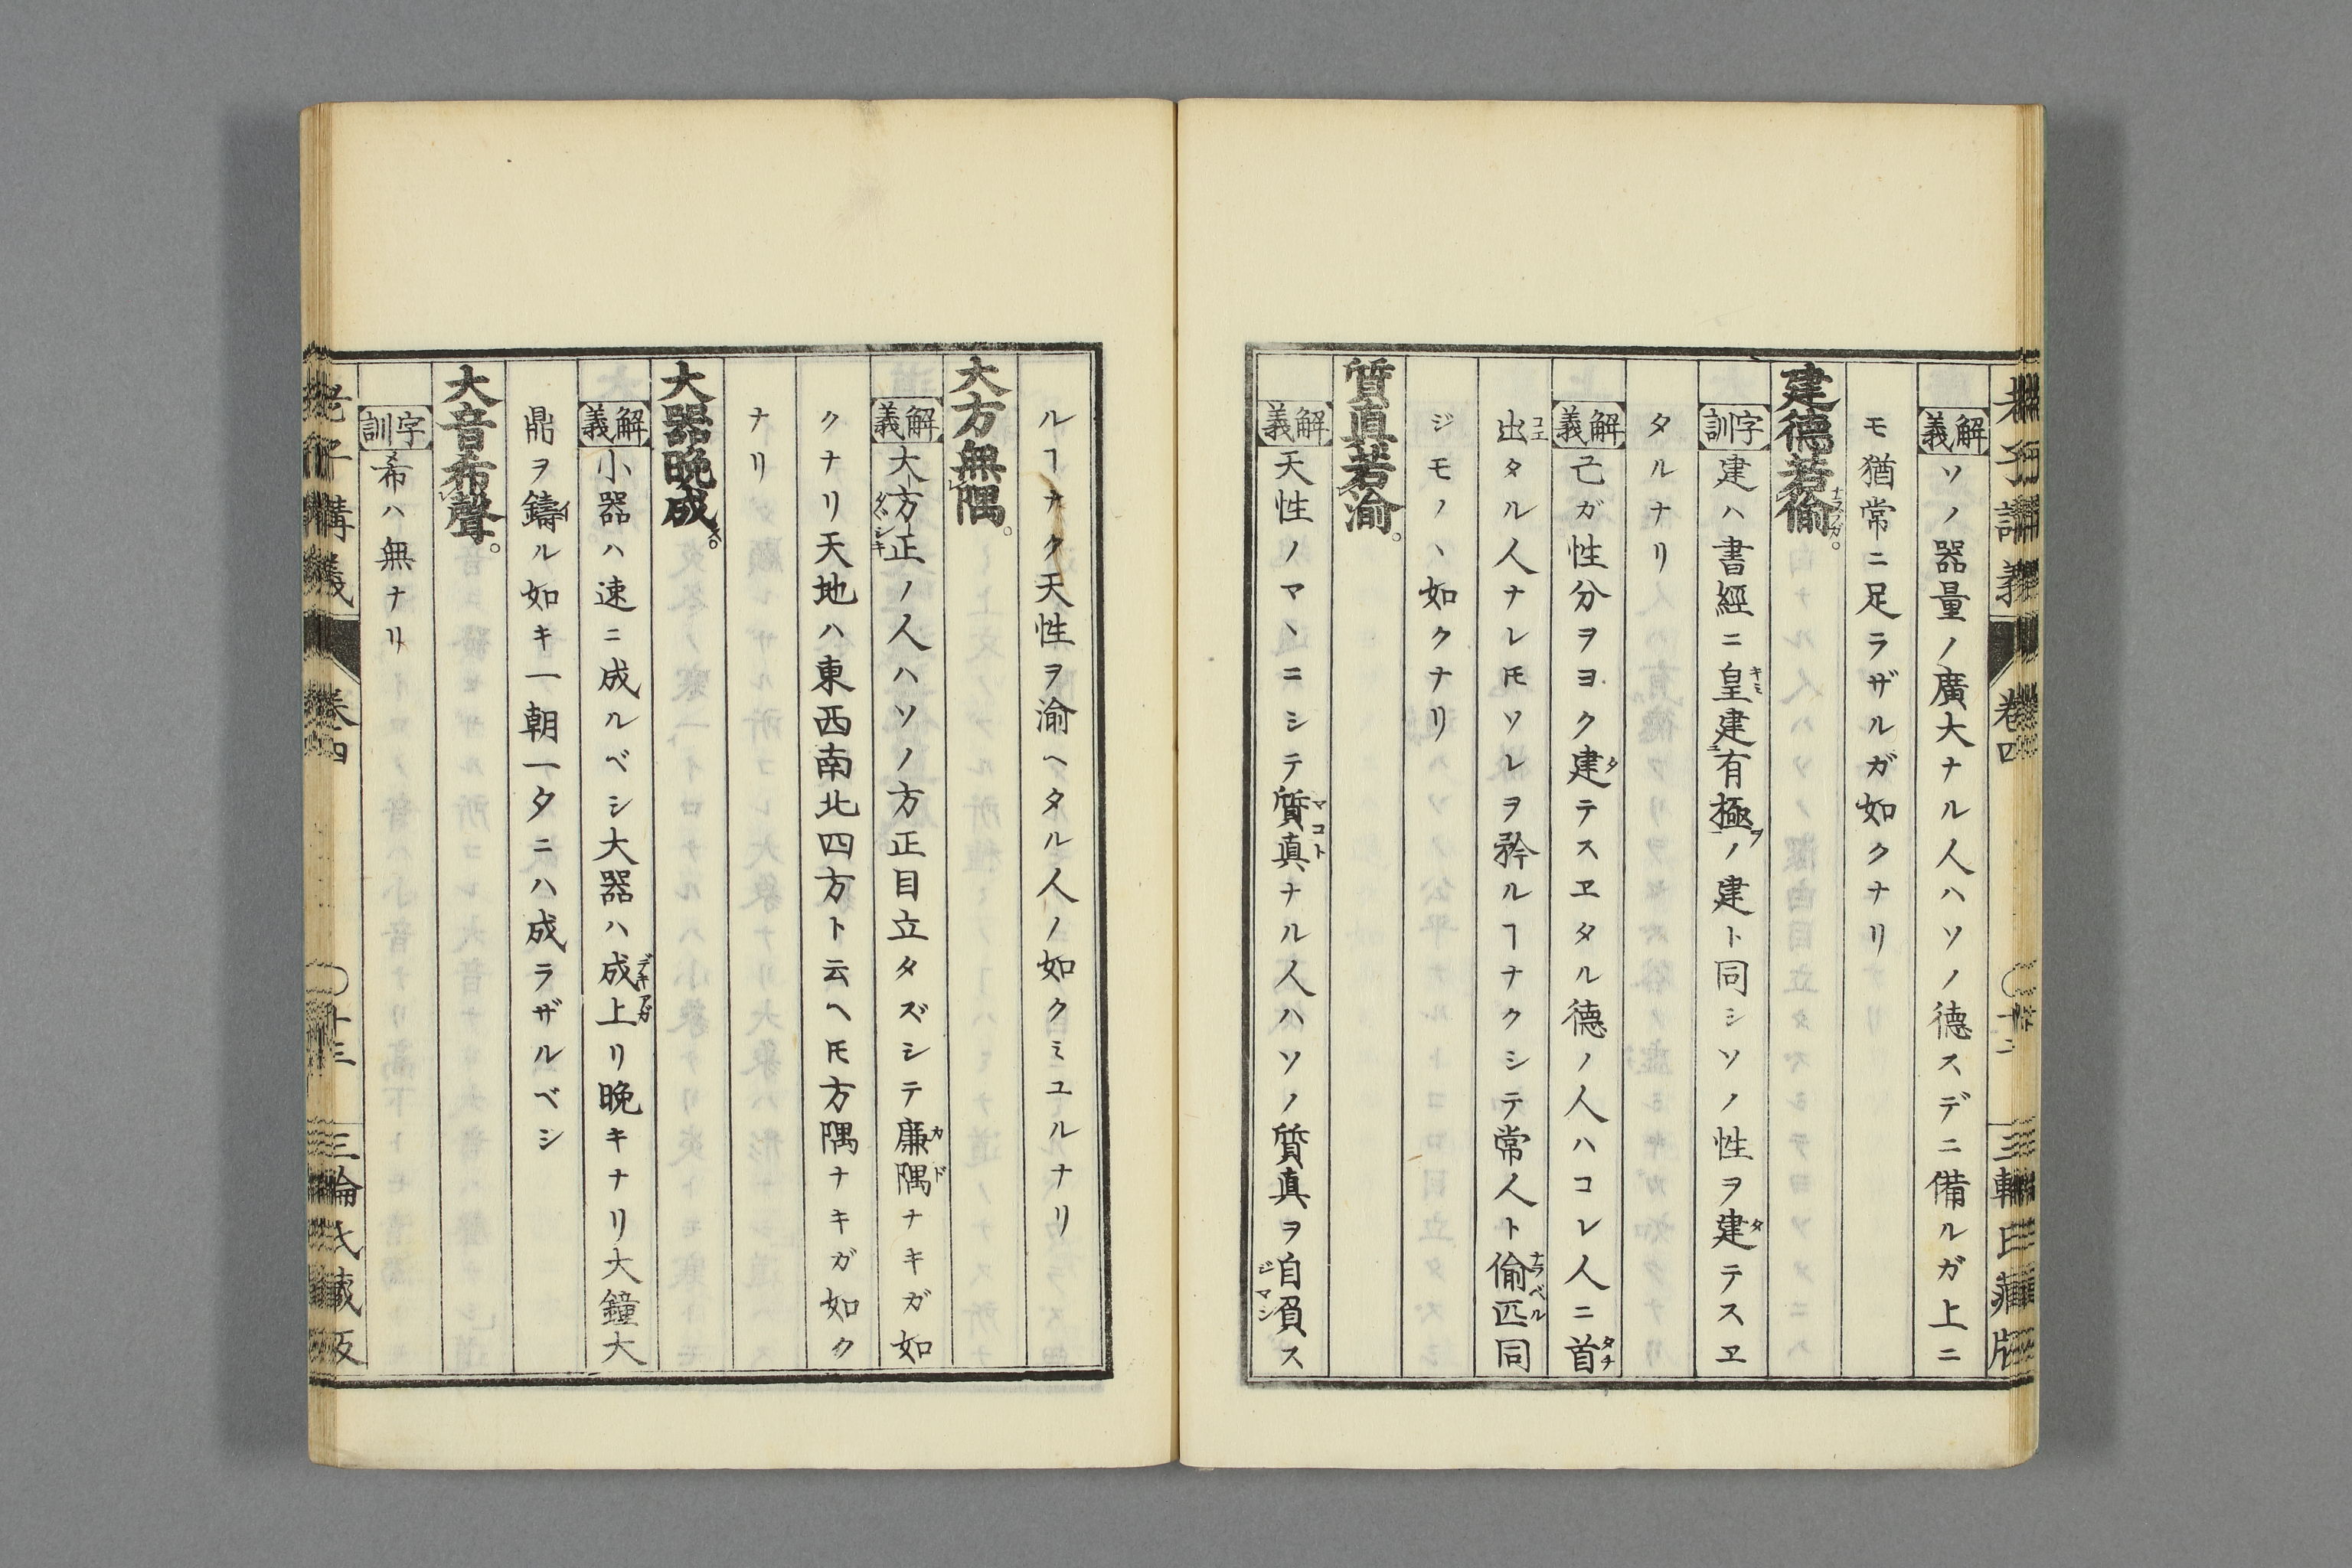 解義 ソノ器量ノ廣大ナル人ハソノ德スデニ備ルガ上ニ
モ猶常ニ足ラザルガ如クナリ
建德若偷。
字訓 建ハ書經ニ皇建有極ノ建ト同シソノ性ヲ建テスヱ
タルナリ
解義 己ガ性分ヲヨク建テスヱタル德ノ人ハコレ人ニ首
出タル人ナレ𪜈ソレヲ矜ルヿナクシテ常人ト偷匹同
ジモノヽ如クナリ
質真若渝。
解義 天性ノマヽニシテ質真ナル人ハソノ質真ヲ自負ス
ルヿナク天性ヲ渝ヘタル人ノ如クミユルナリ
大方無隅。
解義 大方正ノ人ハソノ方正目立タズシテ廉隅ナキガ如
クナリ天地ハ東西南北四方ト云ヘ𪜈方隅ナキガ如ク
ナリ
大器晚成。
解義 小器ハ速ニ成ルベシ大器ハ成上リ晩キナリ大鐘大
鼎ヲ鑄ル如キ一朝一夕ニハ成ラザルベシ
大音希聲。
字訓 希ハ無ナリ
老子講義 卷四 十三 三輪氏藏版